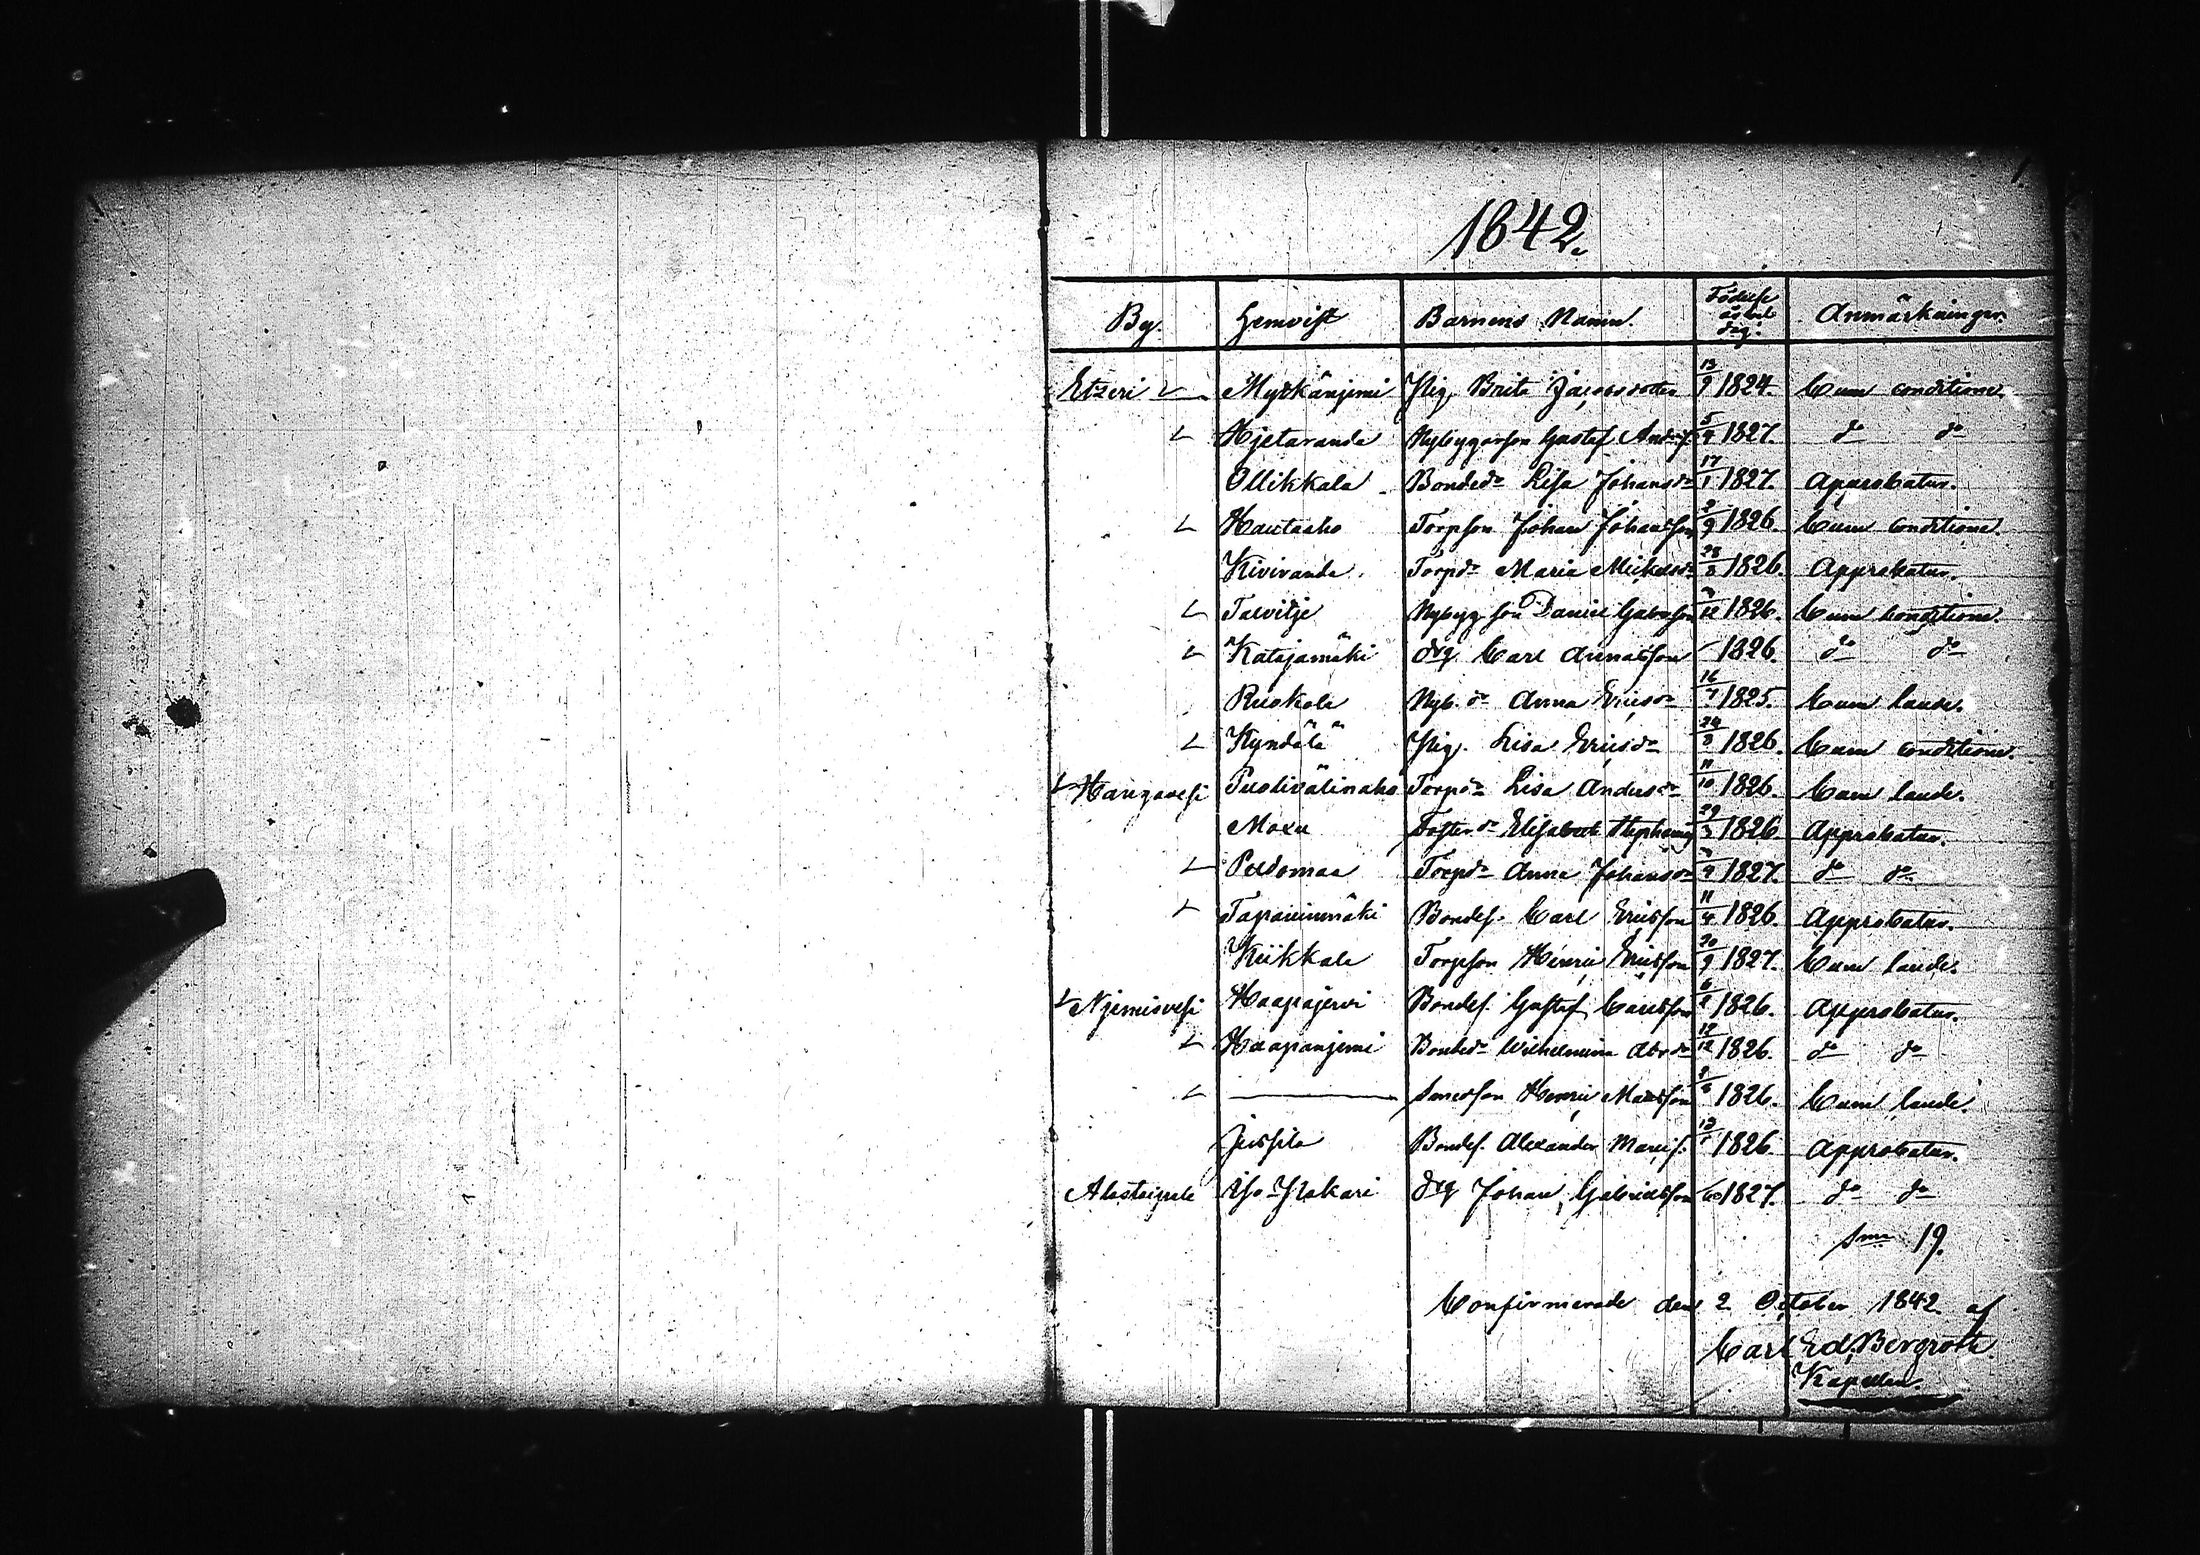 1842.
By. Hemvist Barnens Namn. Födelse år och dag. Anmärkningar.
Etzeri Myrkänjemi Pig. Brita Jacobsdotter 13/9 1824. Cum conditione.
Hjetaranda Nybyggarson Gustaf Andersf. 5/4 1827. do do
Ollikkala Bondedr Lisa Johansdr 17/1 1827. Approbatur.
Hautaaho Torpson Johan Johansson /9 1826. Cum conditione.
Kiviranda Torpdr Maria Michelsdr 28/8 1826. Approbatur.
Talvitje Nybyg. son Daniel Gabrsson /12 1826. Cum conditione.
Katajamäki drg Carl 1826. do do
Ruokola Nyb. dr Anna Ericsdr 16/7 1825. Cum laude.
Kyndälä Pig. Lisa Ericsdr 24/3 1826. Cum conditione.
Hangavesi Puolivälinaho Torpdr Lisa Andersdr 11/10 1826. Cum laude.
Moxu Fosterdr Elisabeth 29/3 1826 Approbatur.
Peldomaa Torpdr Anna Johansdr 1827. do do
Tapaninmäki Bondes. Carl Ericsson 11/4 1826. Approbatur.
Kiikkala Torpson Henric Ericsson 20/9 1827. Cum laude.
Njemisvesi Haapajervi Bondes. Gustaf Carlsson 6/8 1826. Approbatur.
Haapanjemi Bondedr Wilhelmina Abrdr 12/12 1826. do do
— Henric Mattsson 1826. Cum laude.
Jussila Bondes. Alexander 1826. Approbatur.
Alastaipale Iso-Pakari drg Johan Gabrielsson 1827. do do
Sma 19.
Confirmerade den 2 October 1842 af
Carl Ed. Bergroth.
Kapellan.